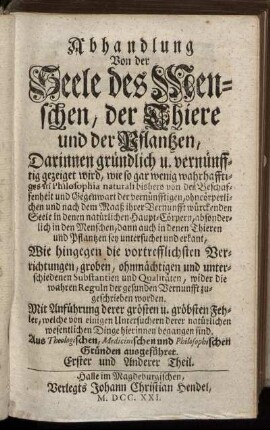 Abhandlung
Von der
Seele des Men-
schen, der Thiere
und der Pflantzen,
Darinnen gründlich u. vernünff-
tig gezeiget wird, wie so gar wenig wahrhaffti-
ges in Philosophia naturali bishero von der Beschaf-
fenheit und Gegenwart der vernünfftigen, ohncörperli-
chen und nach dem Maaß ihrer Vernunfft würckenden
Seele in denen natürlichen Haupt-Cörpern, absonder-
lich in den Menschen, dann auch in denen Thieren
und Pflantzen sey untersuchet und erkant,
Wie hingegen die vortrefflichsten Ver-
richtungen, groben, ohnmächtigen und unter-
schiedenen Substantien und Qualitäten, wider die
wahren Reguln der gesunden Vernunfft zu-
geschrieben worden.
Mit Anführung derer grösten u. gröbsten Feh-
ler, welche von einigen Untersuchern derer natürlichen
wesentlichen Dinge hierinnen begangen sind,
Aus Theologischen, Medicinischen und Philosophischen
Gründen ausgeführet.
Erster und Anderer Theil.
Halle im Magdeburgischen,
Verlegts Johann Christian Hendel,
M. DCC. XXI.